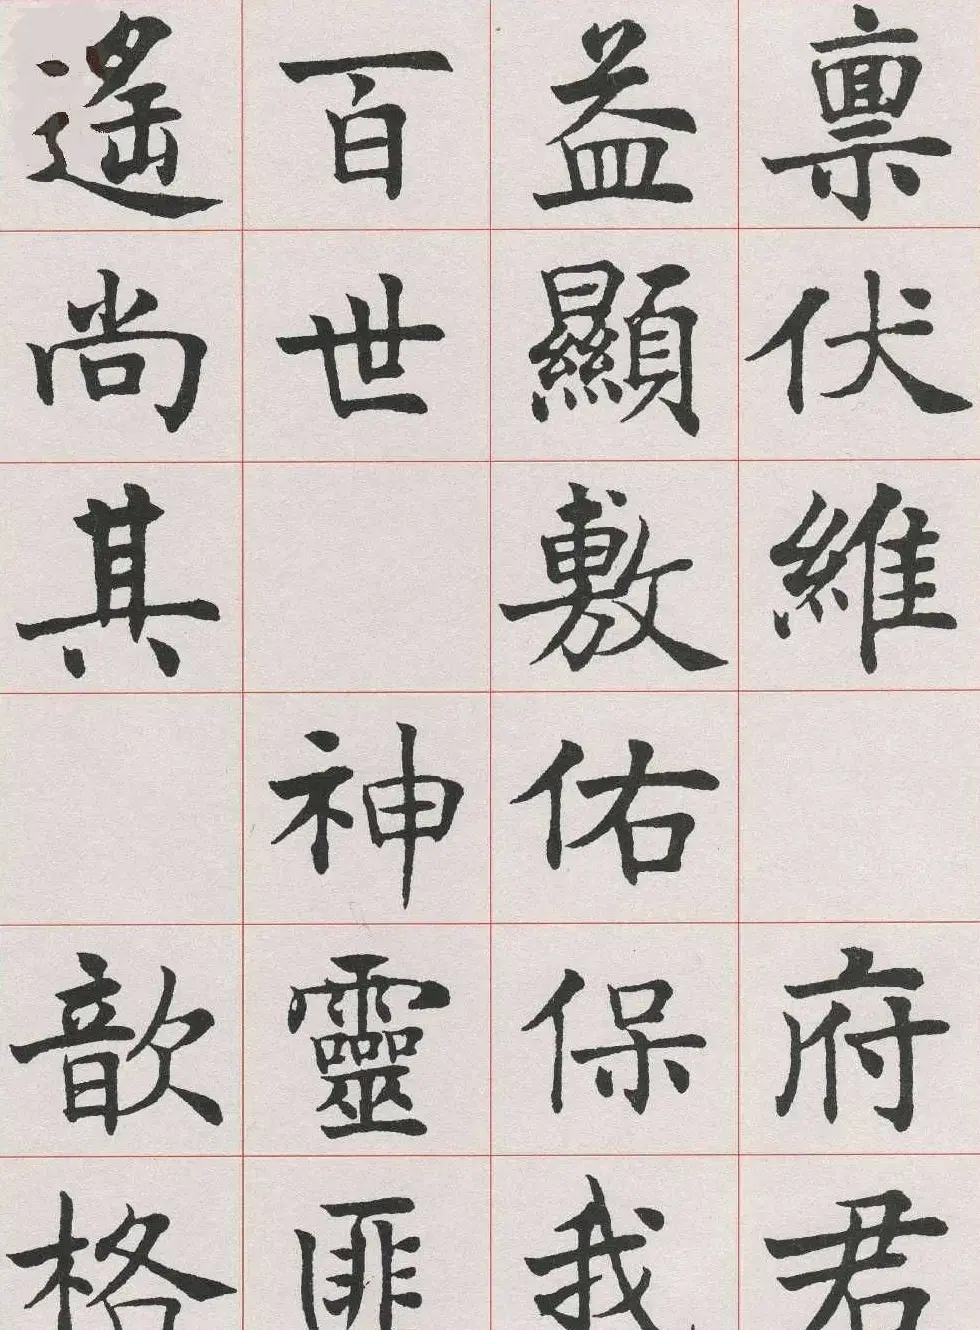 稟伏維 府君
益顯敷佑保我
百世 神靈匪
遙尚其 歆格